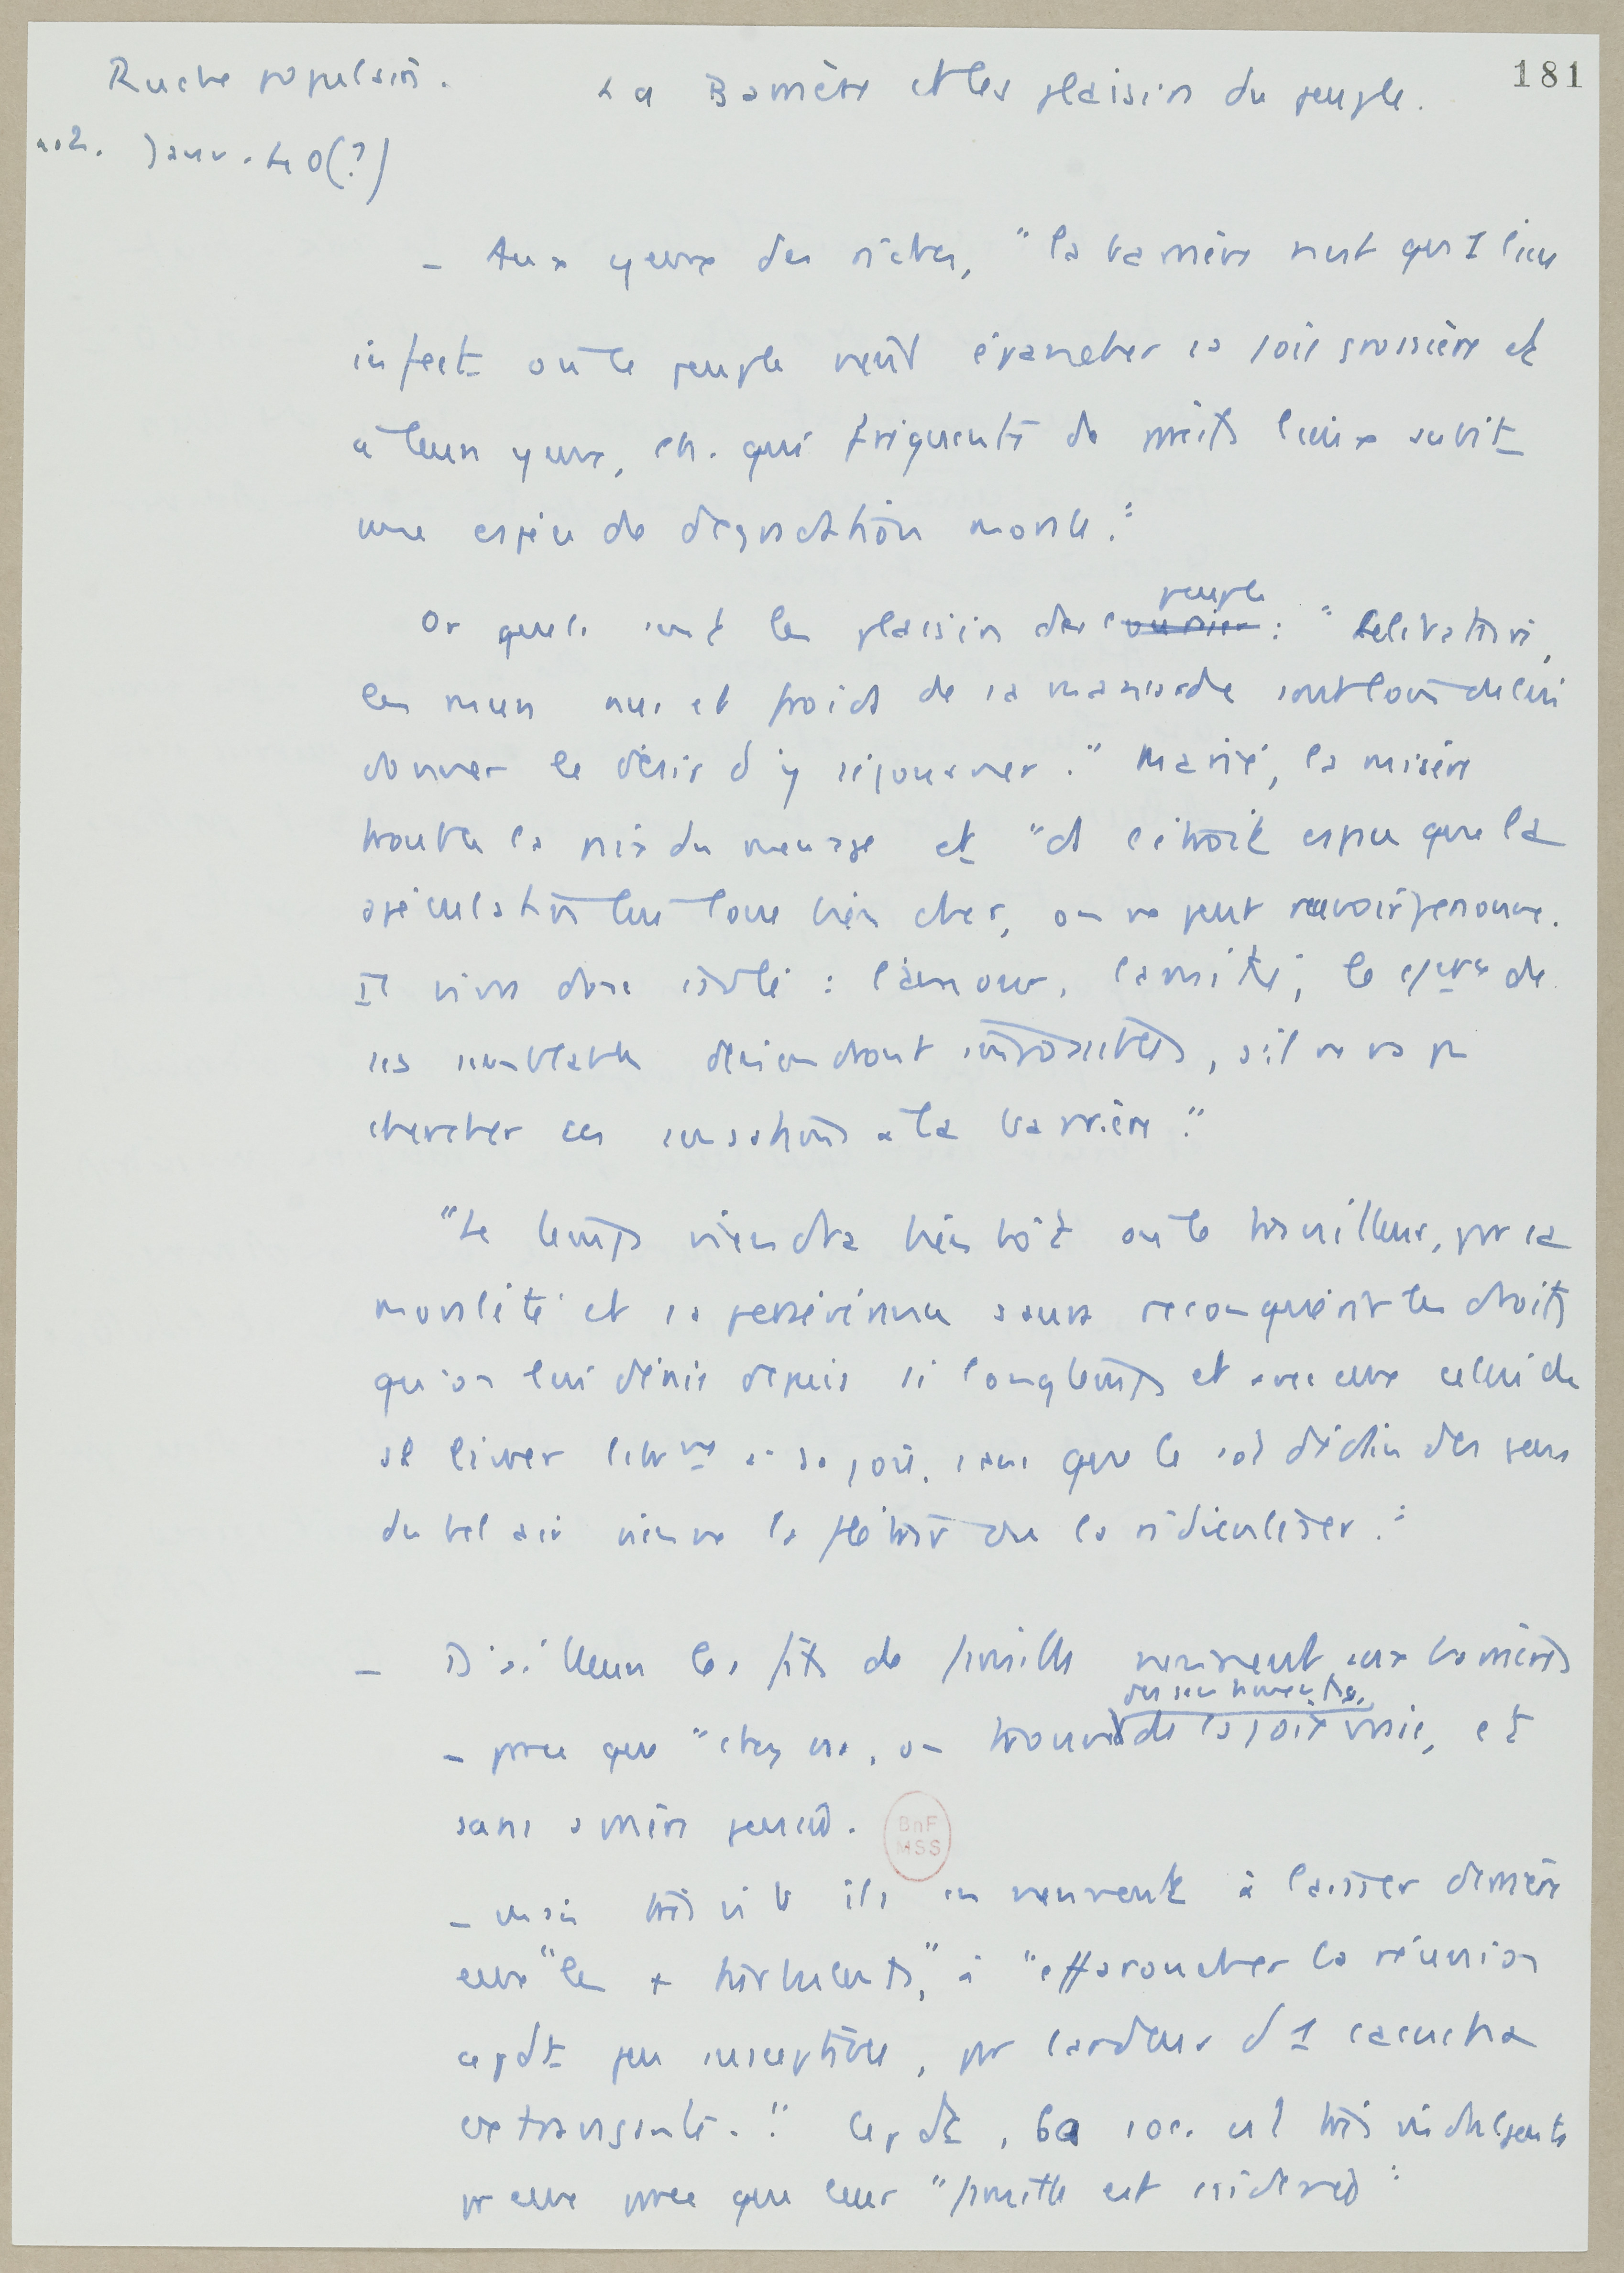 181
Ruche populaire.
La Barrière et les plaisirs du peuple.
n°2. Janv. 40(?)
- Aux yeux des riches, "la barrière n'est qu'1 lieu
infect où le peuple vient épancher sa joie grossière et
à leurs yeux, ch. qui fréquente de pareils lieux subit
une espèce de dégradation morale."
Or quels sont les plaisirs du peuple : "Célibataire,
les murs nus et froids de sa mansarde sont loin de lui
donner le désir d'y séjourner." Marié, la misère
trouble la paix du ménage et "et l'étroit espace que la
spéculation lui loue bien cher, on ne peut recevoir personne.
Il vivra donc isolé : l'amour, l'amitié, le de
ses semblables deviendront, s'il ne va pas
chercher ces sensations à la barrière."
"Le temps viendra bientôt où le travailleur, par sa
moralité et sa persévérance saura reconquérir les droits
qu'on lui dénie depuis si longtemps et avec eux celui de
se livrer librmt à sa joie, sans que le sot dédain des gens
du bel air vienne la flétrir ou la ridiculiser."
- D'ailleurs les fils de famille viennent aux barrières
des sentiments,
- parce que "chez eux, on trouve de la joie vraie, et
sans arrière pensée.
BnF
MSS
- mais très vite ils en viennent à laisser derrière
eux "les + turbulents," à "effaroucher la réunion
cepdt peu susceptible, par l'ardeur d'1 cachucha
extravagante." Cepdt, la soc. est très indulgente
pr eux parce que leur "famille est considérée"